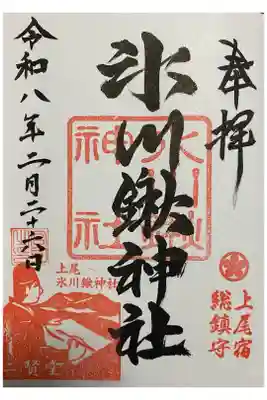 奉拝
上尾宿
総鎮守
氷川鍬神社
氷川鍬神社
令和八年二月二十六日
上尾
氷川鍬神社
二賢堂